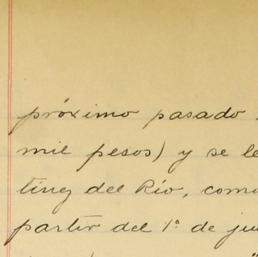 próximo pasado
mil pesos) y se
ting del Río,
partir del 1º de